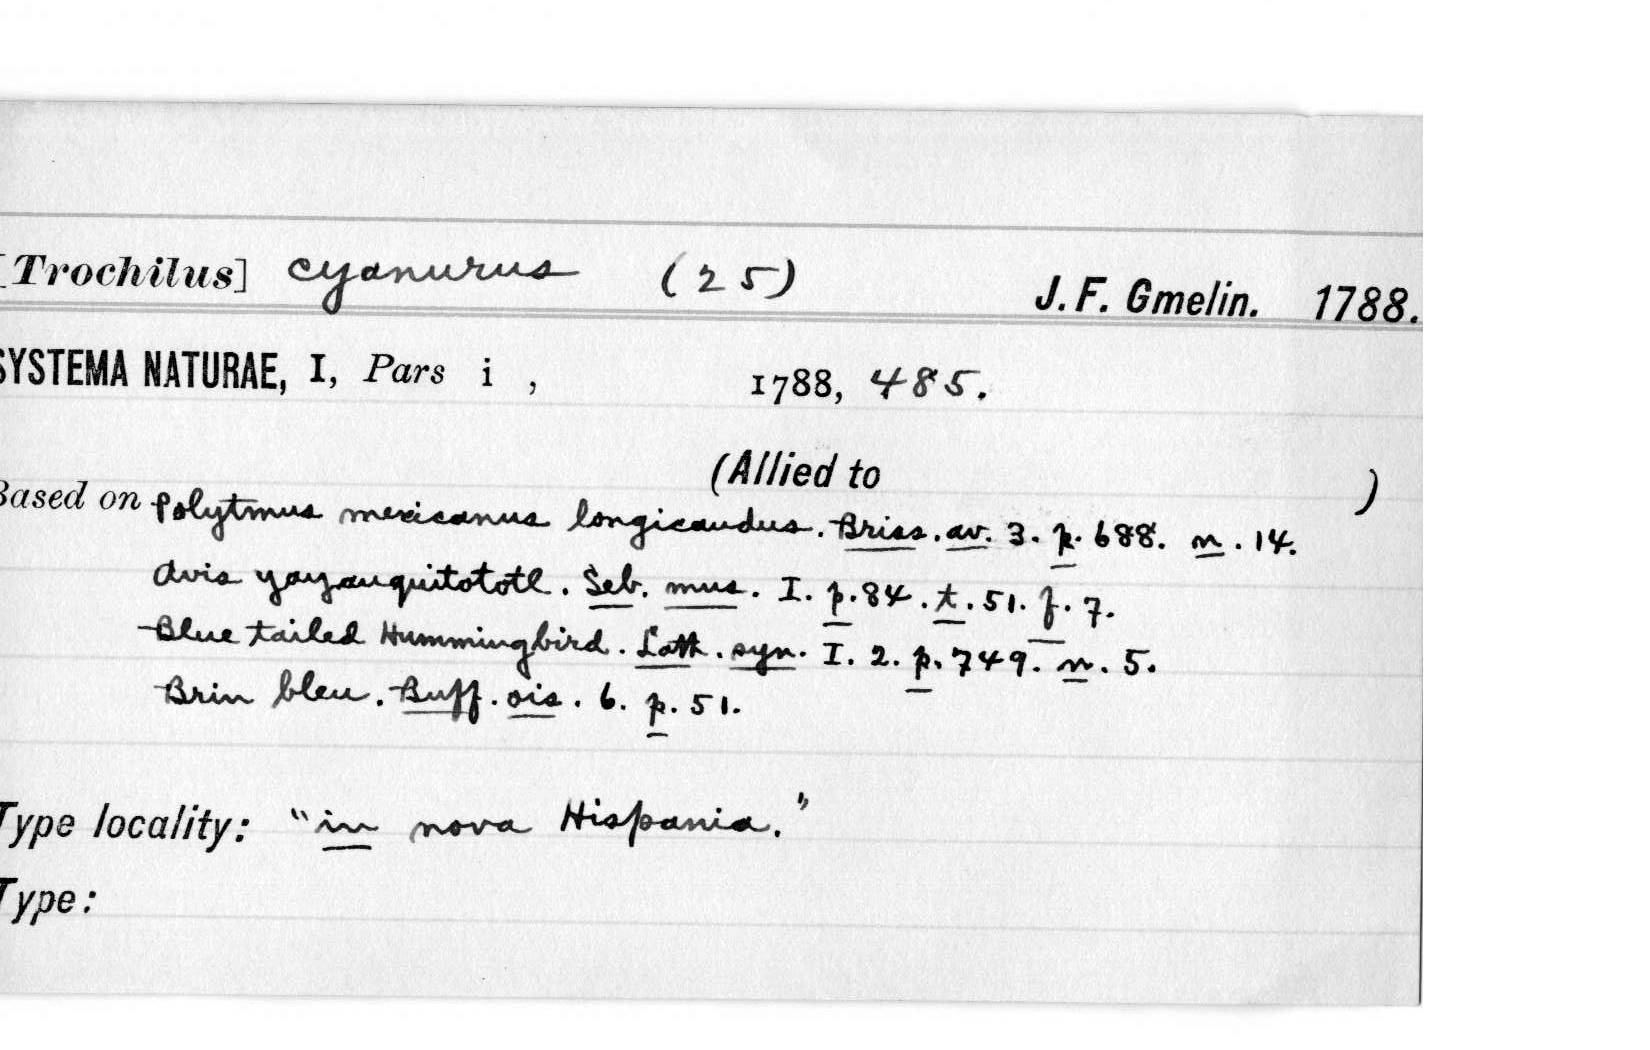 [Trochilus] cyanurus (25) J. F. Gmelin. 1788.
SYSTEMA NATURAE, I, Pars i , 1788, 485.
(Allied to )
Based on Polytmus mexicanus longicaudus. Briss. av. 3. p. 688. n. 14.
Avis yayauquitototl. Seb. mus. I. p. 84. t. 51. f. 7.
Blue tailed Hummingbird. Lath. syn. I. 2. p. 749. n. 5.
Brin bleu. Buff. ois. 6. p. 51.
Type locality: "in nova Hispania."
Type: